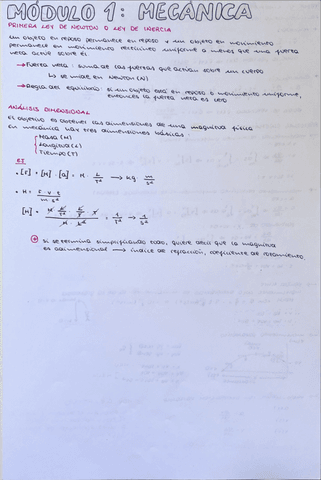 MÓDULO 1: MECÁNICA
PRIMERA LEY DE NEWTON O LEY DE INERCIA
Un objeto en reposo permanece en reposo y un objeto en movimiento
permanece en movimiento rectilíneo uniforme a menos que una fuerza
neta actúe sobre él
→ Fuerza neta: suma de las fuerzas que actúan sobre un cuerpo
↳ se mide en Newton (N)
→ Regla del equilibrio: si un objeto está en reposo o movimiento uniforme,
entonces la fuerza neta es cero
ANÁLISIS DIMENSIONAL
El objetivo es obtener las dimensiones de una magnitud física
En mecánica hay tres dimensiones básicas:
Masa (M)
Longitud (L)
Tiempo (T)
EJ
• [F] = [M] · [a] = M · L/T² → kg · m/s²
• H = F · v · t / m · s²
[H] =
1/T² → 1/s²
si se termina simplificando todo, quiere decir que la magnitud
es adimensional → índice de refracción, coeficiente de rozamiento.